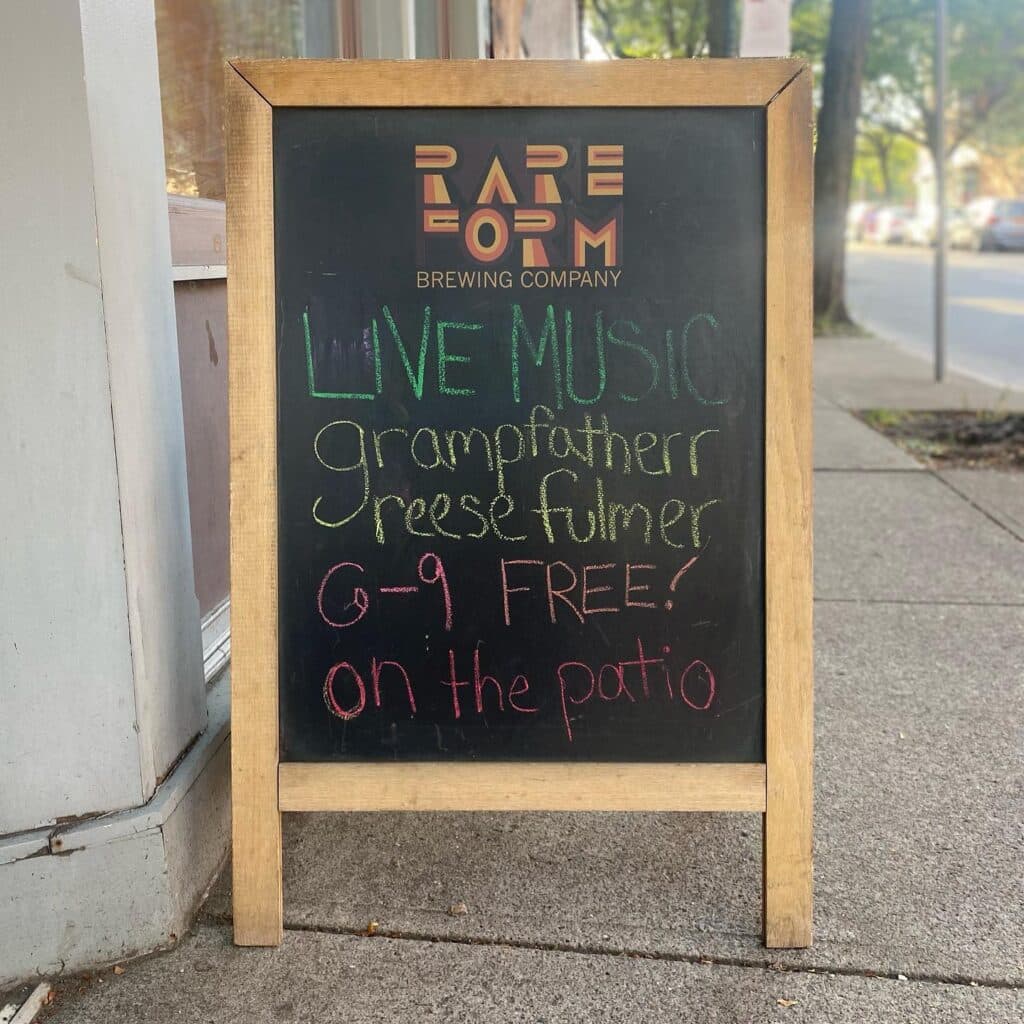 RARE
FORM
BREWING COMPANY
LIVE MUSIC
grampfatherr
reese fulmer
6-9 FREE!
on the patio